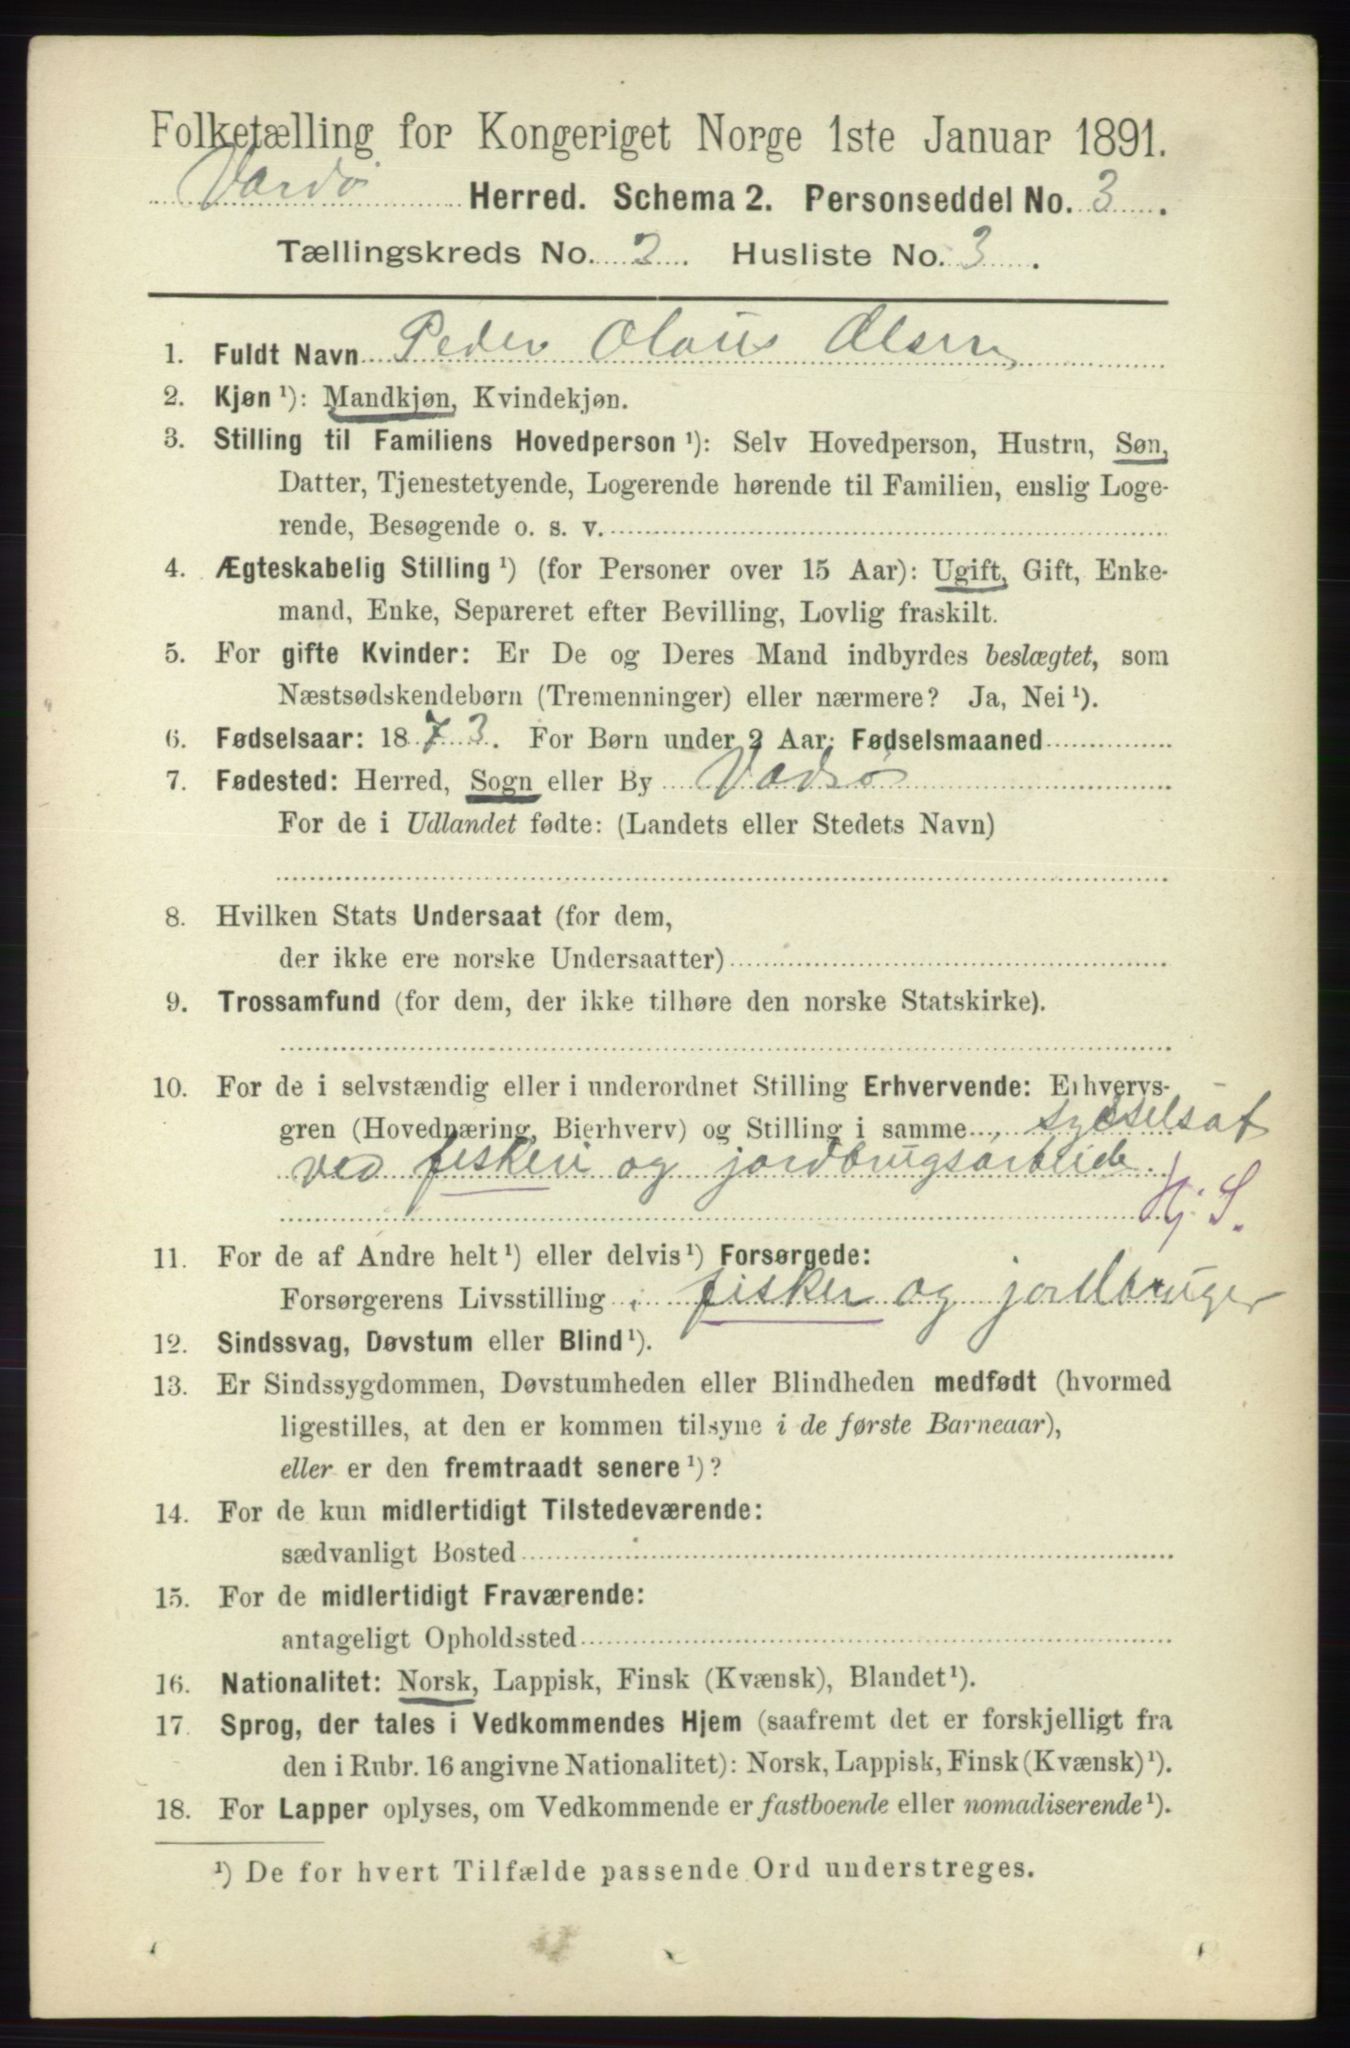 Folketælling for Kongeriget Norge 1ste Januar 1891.
Vardø Herred. Schema 2. Personseddel No. 3.
Tællingskreds No. 2. Husliste No. 3.
1. Fuldt Navn Peder Olaus Olsen
2. Kjøn ¹): Mandkjøn, Kvindekjøn.
3. Stilling til Familiens Hovedperson ¹): Selv Hovedperson, Hustru, Søn,
Datter, Tjenestetyende, Logerende hørende til Familien, enslig Loge-
rende, Besøgende o. s. v.
4. Ægteskabelig Stilling ¹) (for Personer over 15 Aar): Ugift, Gift, Enke-
mand, Enke, Separeret efter Bevilling, Lovlig fraskilt.
5. For gifte Kvinder: Er De og Deres Mand indbyrdes beslægtet, som
Næstsødskendebørn (Tremenninger) eller nærmere? Ja, Nei ¹).
6. Fødselsaar: 1873. For Børn under 2 Aar: Fødselsmaaned
7. Fødested: Herred, Sogn eller By Vadsø
For de i Udlandet fødte: (Landets eller Stedets Navn)
8. Hvilken Stats Undersaat (for dem,
der ikke ere norske Undersaatter)
9. Trossamfund (for dem, der ikke tilhøre den norske Statskirke).
10. For de i selvstændig eller i underordnet Stilling Erhvervende: Erhvervs-
gren (Hovednæring, Bierhverv) og Stilling i samme sysselsat
ved fiskeri og jordbrugsarbeide
Hj. S.
11. For de af Andre helt ¹) eller delvis ¹) Forsørgede:
Forsørgerens Livsstilling fisker og jordbruger
12. Sindssvag, Døvstum eller Blind ¹).
13. Er Sindssygdommen, Døvstumheden eller Blindheden medfødt (hvormed
ligestilles, at den er kommen tilsyne i de første Barneaar),
eller er den fremtraadt senere ¹)?
14. For de kun midlertidigt Tilstedeværende:
sædvanligt Bosted
15. For de midlertidigt Fraværende:
antageligt Opholdssted
16. Nationalitet: Norsk, Lappisk, Finsk (Kvænsk), Blandet ¹).
17. Sprog, der tales i Vedkommendes Hjem (saafremt det er forskjelligt fra
den i Rubr. 16 angivne Nationalitet): Norsk, Lappisk, Finsk (Kvænsk) ¹).
18. For Lapper oplyses, om Vedkommende er fastboende eller nomadiserende ¹).
¹) De for hvert Tilfælde passende Ord understreges.